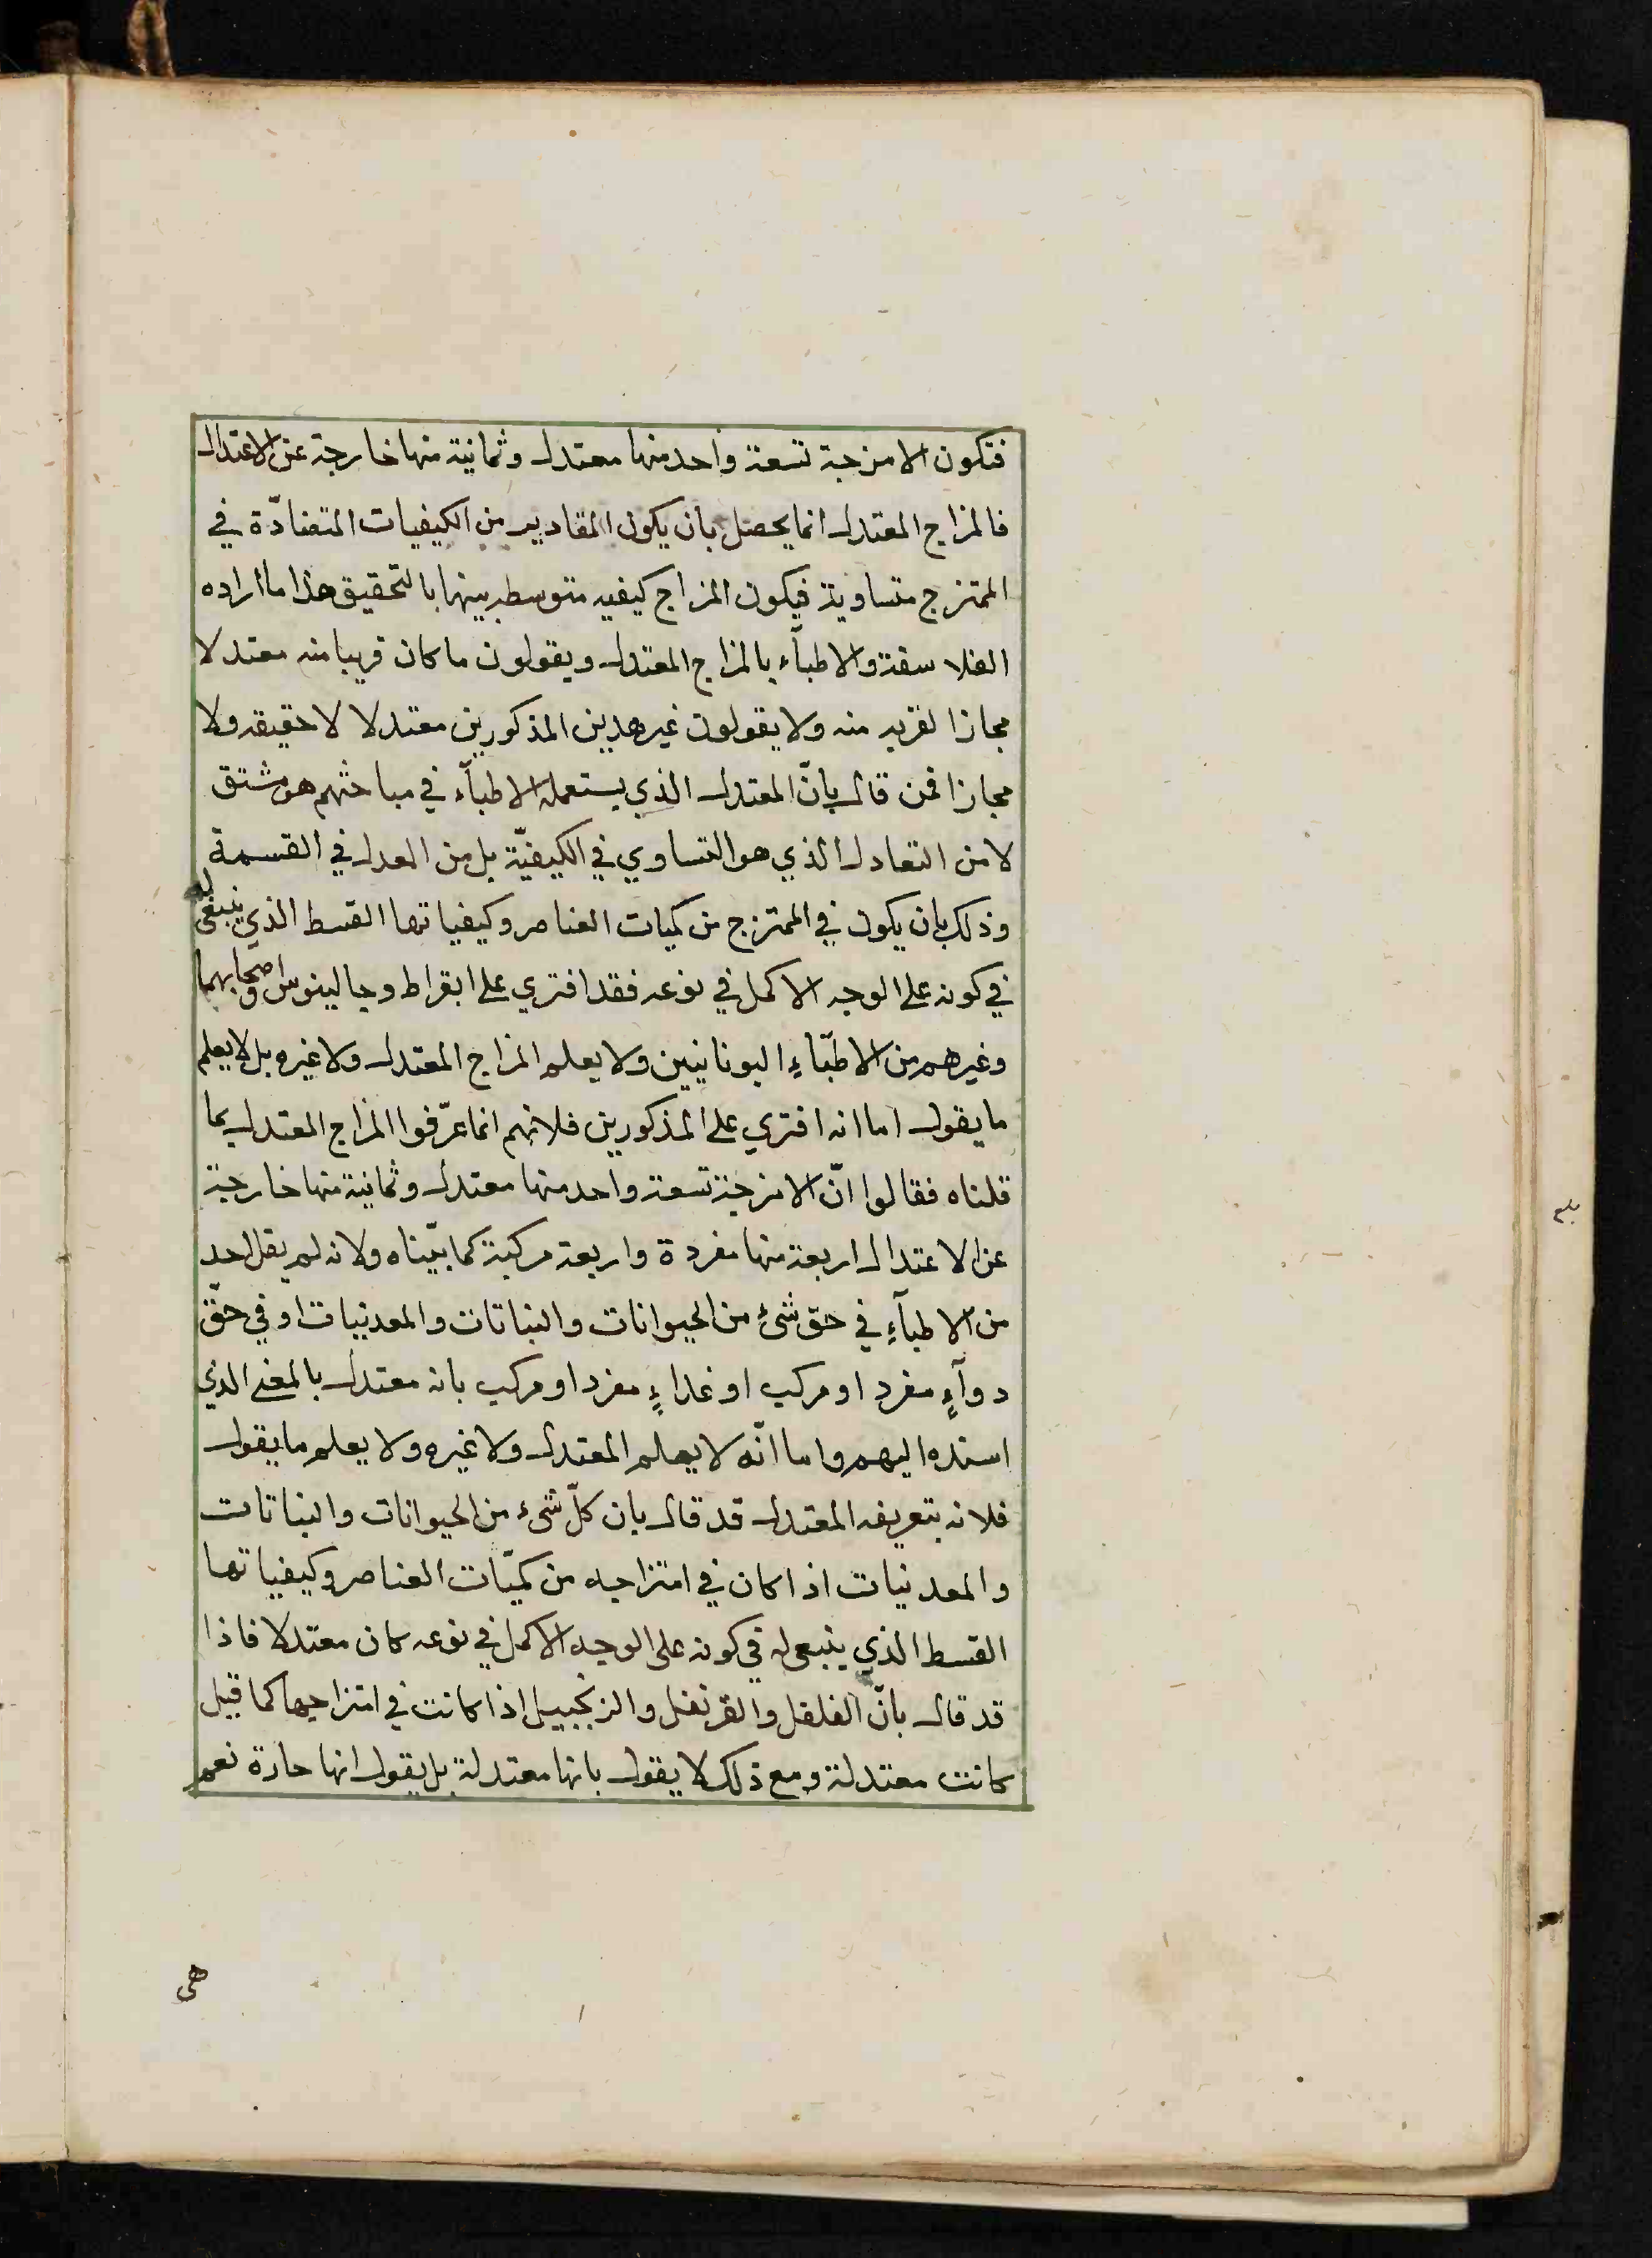 فتكون الامزجة تسعة واحد منها معتدل وثمانية منها خارجة عن الاعتدال
فالمزاج المعتدل انما يحصل بان يكون المقادير من الكيفيات المتضادّة في
الممتزج متساوية فيكون المزاج كيفيه متوسطه بينها بالتحقيق هذا ما اراده
الفلاسفة والاطبآء بالمزاج المعتدل ويقولون ما كان قريبا منه معتدلا
مجازا لقربه منه ولا يقولون غير هدين المذكورين معتدلا لا حقيقه ولا
مجازا فمن قال بانّ المعتدل الذي يستعمله الاطبآء في مباحثهم هو مشتق
لا من التعادل الذي هو التساوي في الكيفيّة بل من العدل في القسمة
وذلك بان يكون في الممتزج من كميات العناصر وكيفياتها القسط الذي ينبغى له
في كونه على الوجه الاكمل في نوعه فقد افتري على ابقراط وجالينوس واصحابهما
وغيرهم من الاطبّاءِ اليونانيين ولا يعلم المزاج المعتدل ولا غيره بل لا يعلم
ما يقول اما انه افتري على المذكورين فلانهم انما عرّفوا المزاج المعتدل بما
قلناه فقالوا انّ الامزجة تسعة واحد منها معتدل وثمانية منها خارجة
عن الاعتدال اربعة منها مفردة واربعة مركبة كما بيّناه ولانه لم يقل احد
من الاطبآءِ في حق شئ من الحيوانات والنباتات والمعدنيات او في حقّ
دوآءٍ مفرد او مركب او غداءٍ مفرد او مركب بانه معتدل بالمعنى الذي
اسنده اليهم واما انّه لا يعلم المعتدل ولا غيره ولا يعلم ما يقول
فلانه بتعريفه المعتدل قد قال بان كلّ شئ من الحيوانات والنباتات
والمعدنيات اذا كان في امتزاجه من كميّات العناصر وكيفياتها
القسط الذي ينبغى له في كونه على الوجه الاكمل في نوعه كان معتدلا فاذا
قد قال بانّ الفلفل والقرنفل والزنجبيل اذا كانت في امتزاجها كما قيل
كانت معتدلة ومع ذلك لا يقول بانها معتدلة بل يقول انها حارة نعم
هى